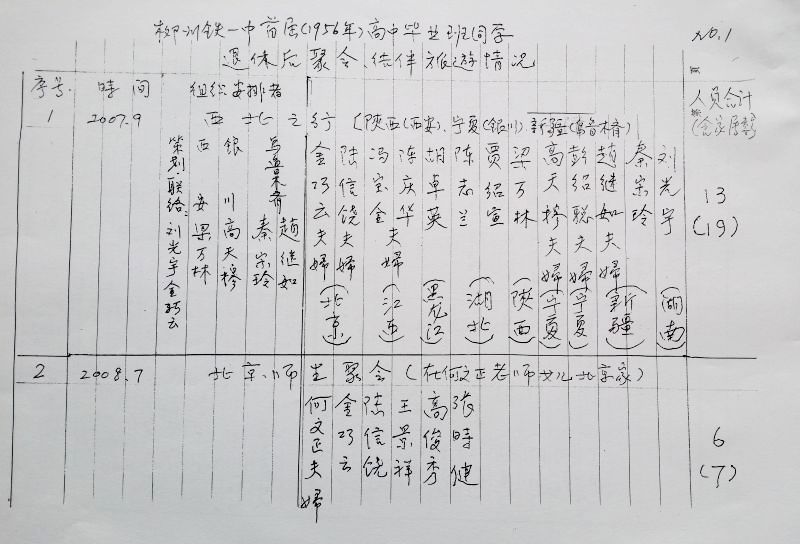 柳州铁一中首届(1956年)高中毕业班同学
No.1
退休后聚会、结伴旅遊情况
页
序号
時间
组织安排者
人员合计
(含家属等)
1
2007.9
西北之行(陕西(西安)、宁夏(银川)、新疆(乌鲁木齐)
策划联络:刘光宇金巧云
西安梁万林
银川高天穆
乌鲁木齐
秦宗玲
趙继如
金巧云夫婦
陆信饶夫婦
(北京)
冯宝金
陈庆华夫婦
(江西)
胡卓英
(黑龙江)
陈志兰
(湖北)
贾绍宣
梁万林
(陕西)
高天穆夫婦
(宁夏)
彭绍聪夫婦
(宁夏)
趙继如夫婦
秦宗玲
(新疆)
刘光宇
(湖南)
13
(19)
2
2008.7
北京师生聚会(在何文正老师女儿北京家)
何文正夫婦
金巧云
陆信饶
王景祥
高俊秀
張時健
6
(7)